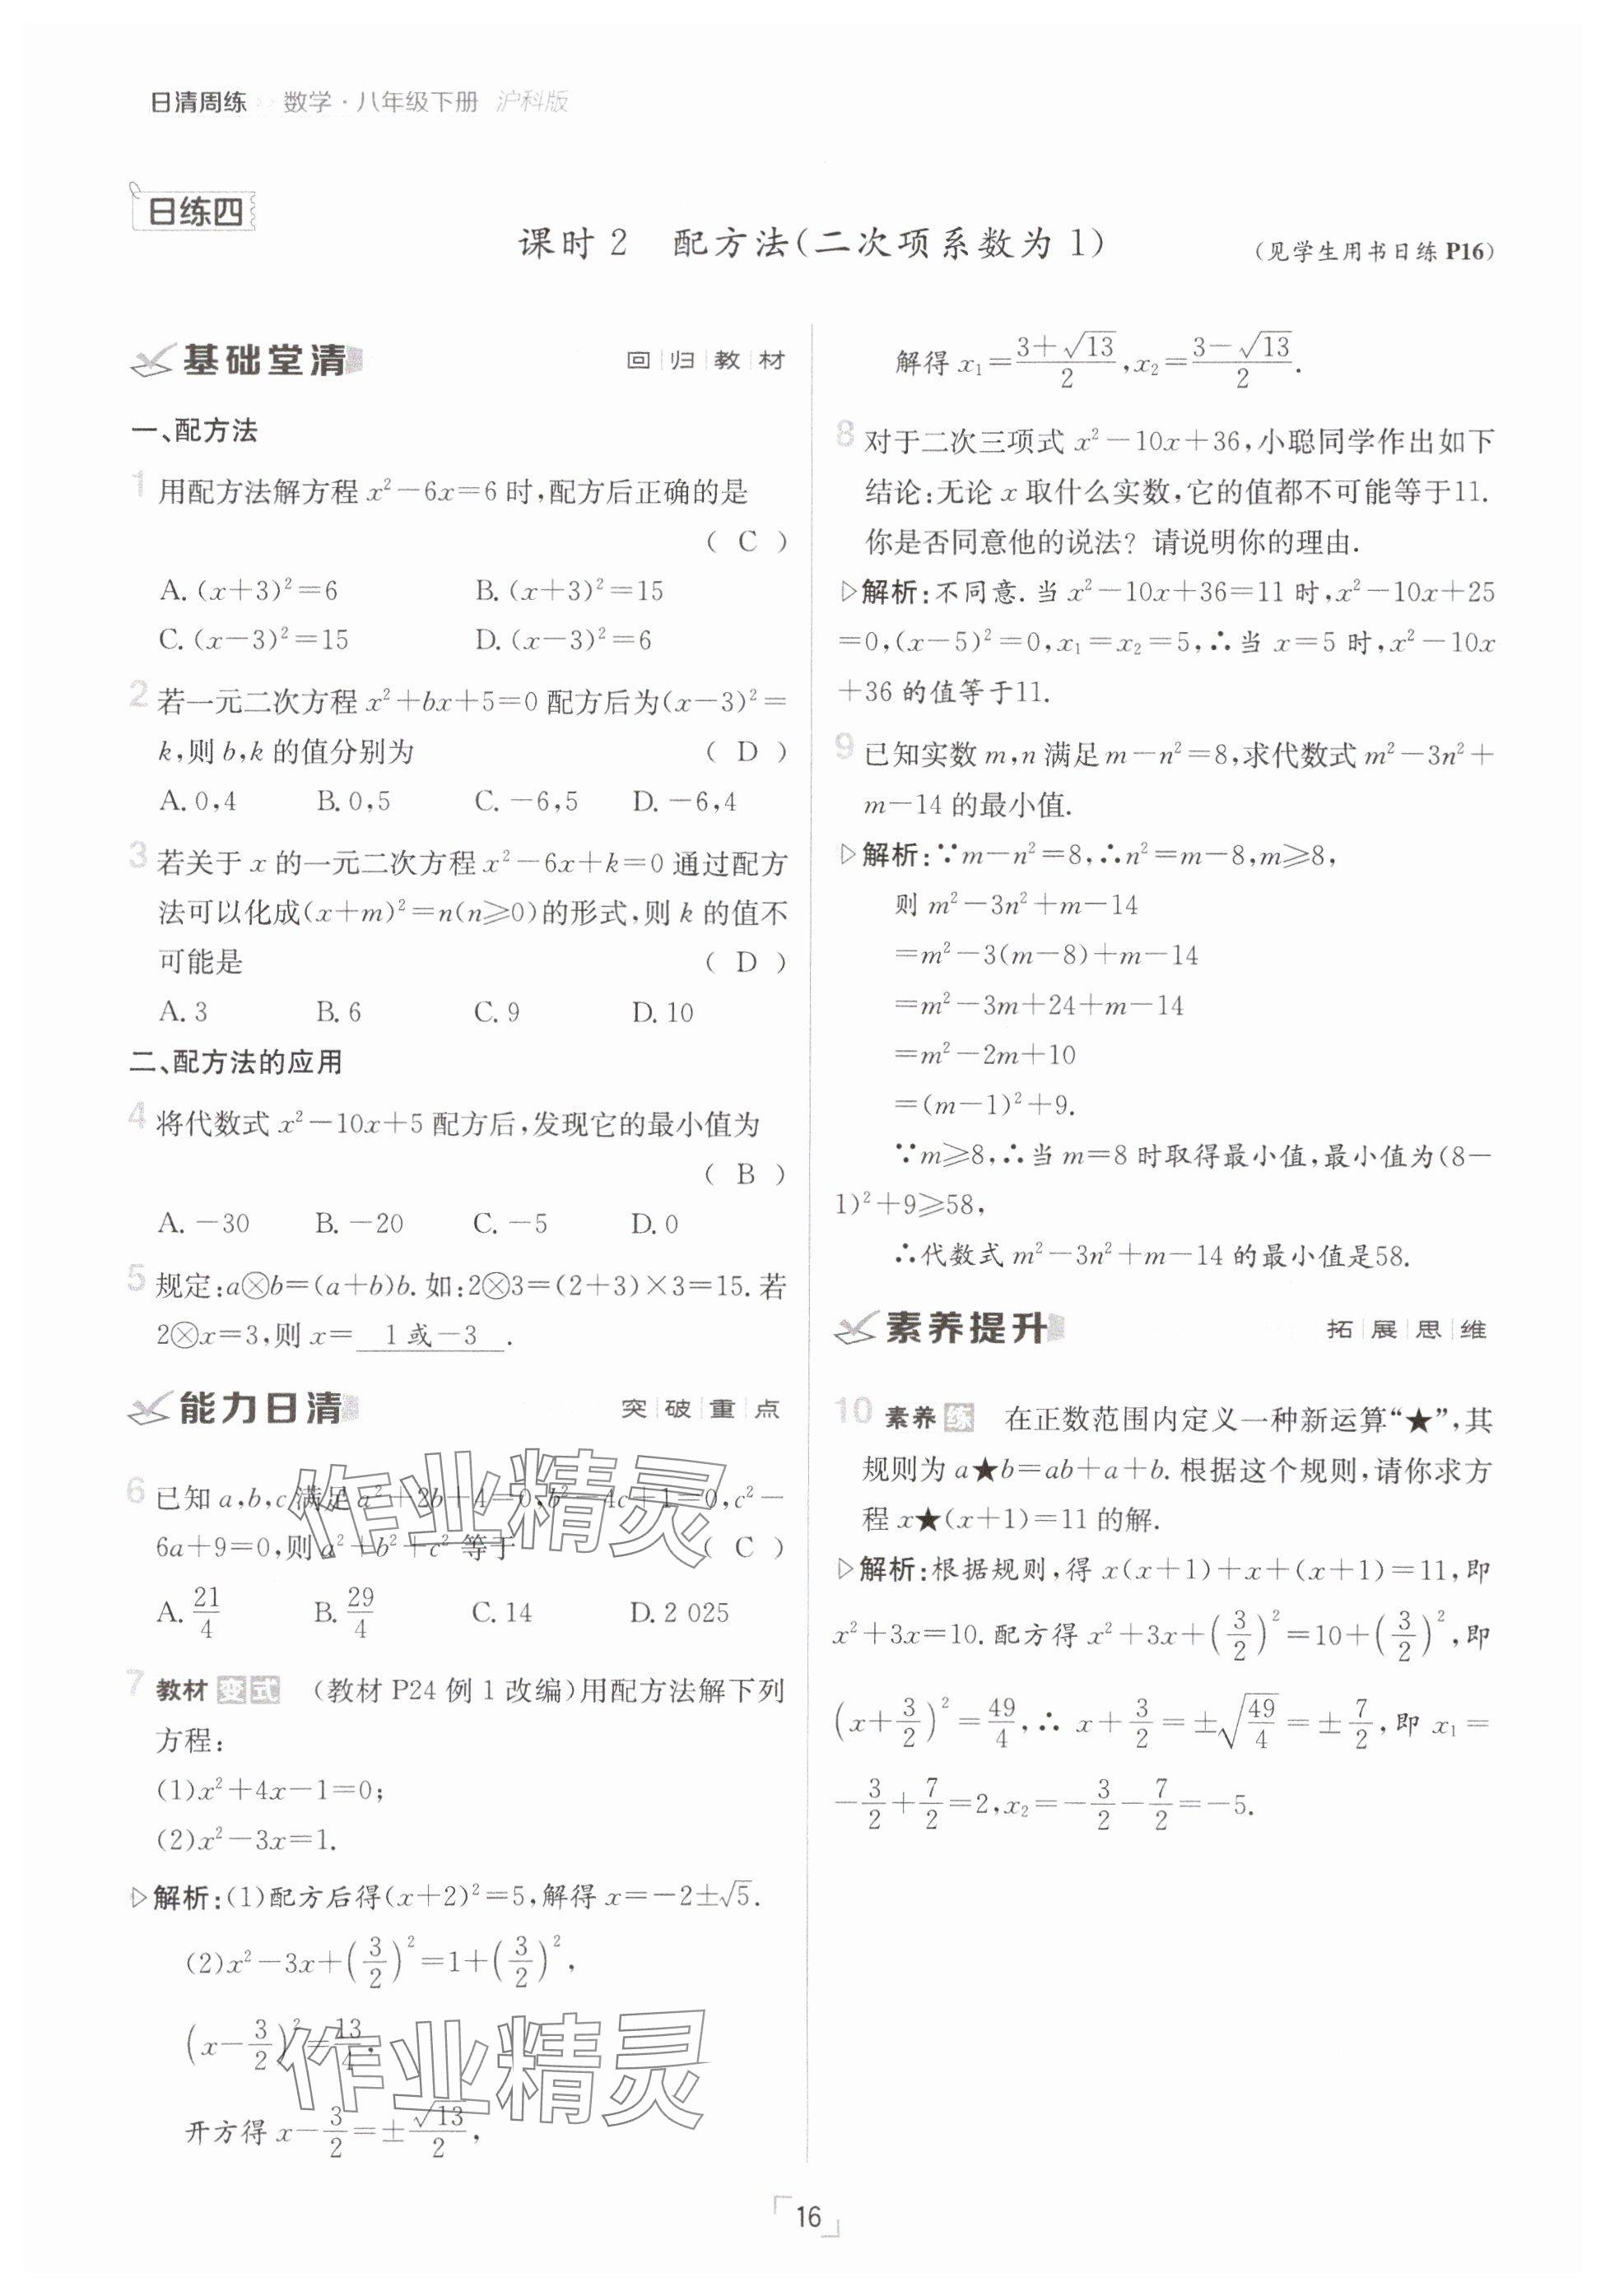 日清周练 数学·八年级下册 沪科版
日练四
课时2 配方法(二次项系数为1)
(见学生用书日练P16)
基础堂清 回归教材
一、配方法
1 用配方法解方程x²-6x=6时,配方后正确的是
( C )
A.(x+3)²=6 B.(x+3)²=15
C.(x-3)²=15 D.(x-3)²=6
2 若一元二次方程x²+bx+5=0配方后为(x-3)²=
k,则b,k的值分别为 ( D )
A.0,4 B.0,5 C.-6,5 D.-6,4
3 若关于x的一元二次方程x²-6x+k=0通过配方
法可以化成(x+m)²=n(n≥0)的形式,则k的值不
可能是 ( D )
A.3 B.6 C.9 D.10
二、配方法的应用
4 将代数式x²-10x+5配方后,发现它的最小值为
( B )
A.-30 B.-20 C.-5 D.0
5 规定:a⊗b=(a+b)b.如:2⊗3=(2+3)×3=15.若
2⊗x=3,则x= 1或-3 .
能力日清 突破重点
6 已知a,b,c满足a²+2b+4=0,b²-4c+1=0,c²-
6a+9=0,则a²+b²+c²等于 ( C )
A.21/4 B.29/4 C.14 D.2 025
7 教材变式 (教材P24例1改编)用配方法解下列
方程:
(1)x²+4x-1=0;
(2)x²-3x=1.
▷解析:(1)配方后得(x+2)²=5,解得x=-2±√5.
(2)x²-3x+(3/2)²=1+(3/2)²,
(x-3/2)²=13/4,
开方得x-3/2=±√13/2,
解得x₁=(3+√13)/2,x₂=(3-√13)/2.
8 对于二次三项式x²-10x+36,小聪同学作出如下
结论:无论x取什么实数,它的值都不可能等于11.
你是否同意他的说法?请说明你的理由.
▷解析:不同意.当x²-10x+36=11时,x²-10x+25
=0,(x-5)²=0,x₁=x₂=5,∴当x=5时,x²-10x
+36的值等于11.
9 已知实数m,n满足m-n²=8,求代数式m²-3n²+
m-14的最小值.
▷解析:∵m-n²=8,∴n²=m-8,m≥8,
则m²-3n²+m-14
=m²-3(m-8)+m-14
=m²-3m+24+m-14
=m²-2m+10
=(m-1)²+9.
∵m≥8,∴当m=8时取得最小值,最小值为(8-
1)²+9≥58,
∴代数式m²-3n²+m-14的最小值是58.
素养提升 拓展思维
10 素养练 在正数范围内定义一种新运算“★”,其
规则为a★b=ab+a+b.根据这个规则,请你求方
程x★(x+1)=11的解.
▷解析:根据规则,得x(x+1)+x+(x+1)=11,即
x²+3x=10.配方得x²+3x+(3/2)²=10+(3/2)²,即
(x+3/2)²=49/4,∴x+3/2=±√(49/4)=±7/2,即x₁=
-3/2+7/2=2,x₂=-3/2-7/2=-5.
作业精灵
作业精灵
16